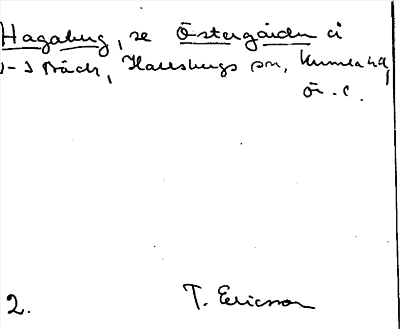 Hagaberg, se Östergården i
Hallsbergs sn, Kumla hd,
Ö. C.
2.
T. Ericsson